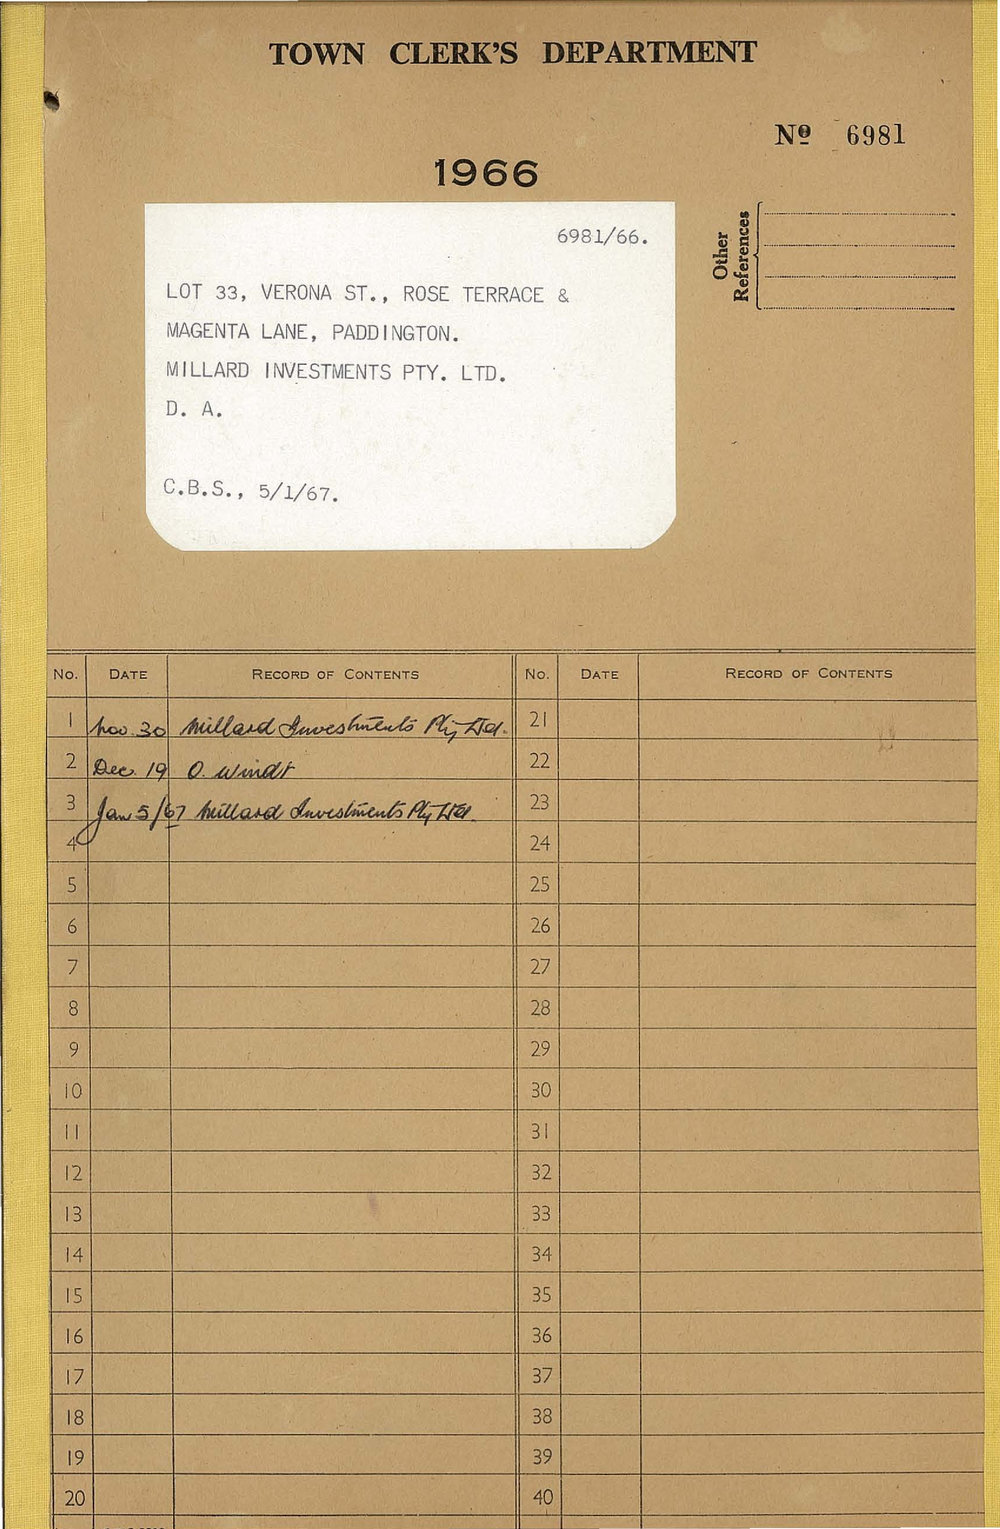 TOWN CLERK'S DEPARTMENT
Nº 6981
1966
Other References
6981/66.
LOT 33, VERONA ST., ROSE TERRACE &
MAGENTA LANE, PADDINGTON.
MILLARD INVESTMENTS PTY. LTD.
D. A.
C.B.S., 5/1/67.
No. DATE RECORD OF CONTENTS No. DATE RECORD OF CONTENTS
1 Nov. 30 Millard Investments Pty Ltd. 21
2 Dec. 19 O. Windt 22
3 Jan 5/67 Millard Investments Pty Ltd. 23
4 24
5 25
6 26
7 27
8 28
9 29
10 30
11 31
12 32
13 33
14 34
15 35
16 36
17 37
18 38
19 39
20 40